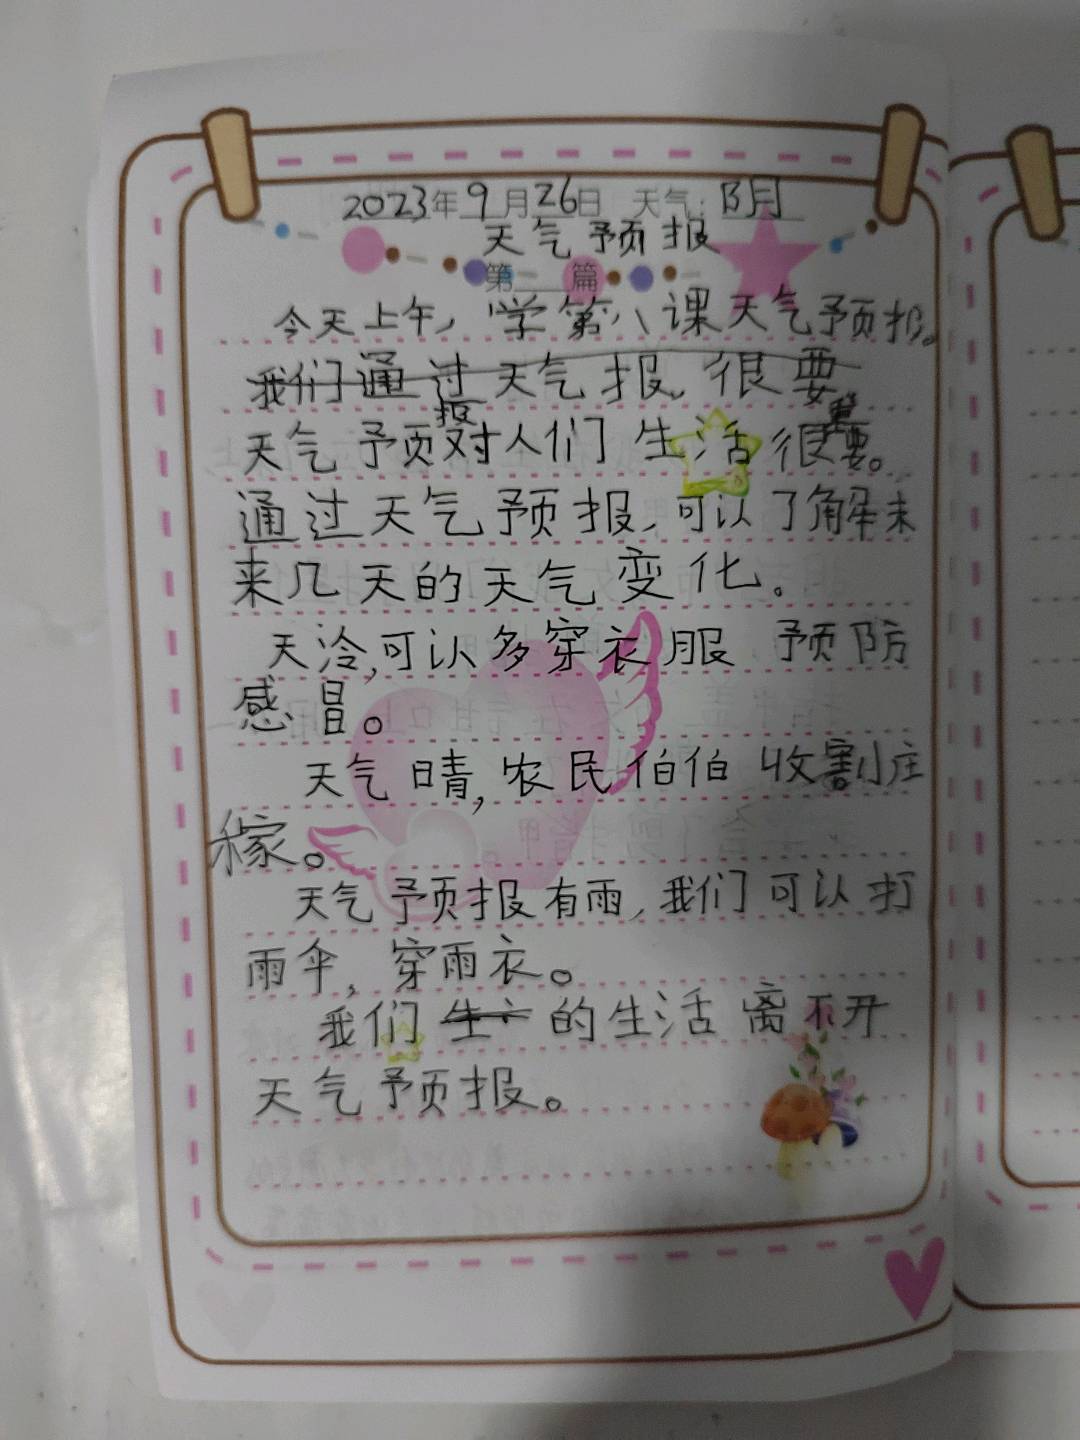 2023年9月26日 天气:阴
天气预报
第 篇
今天上午,学第八课天气预报。
我们通过天气报很要
天气预报对人们生活很重要。
通过天气预报,可以了解未
来几天的天气变化。
天冷,可以多穿衣服 预防
感冒。
天气晴,农民伯伯收割庄
稼。
天气预报有雨,我们可以打
雨伞,穿雨衣。
我们的生活离不开
天气预报。